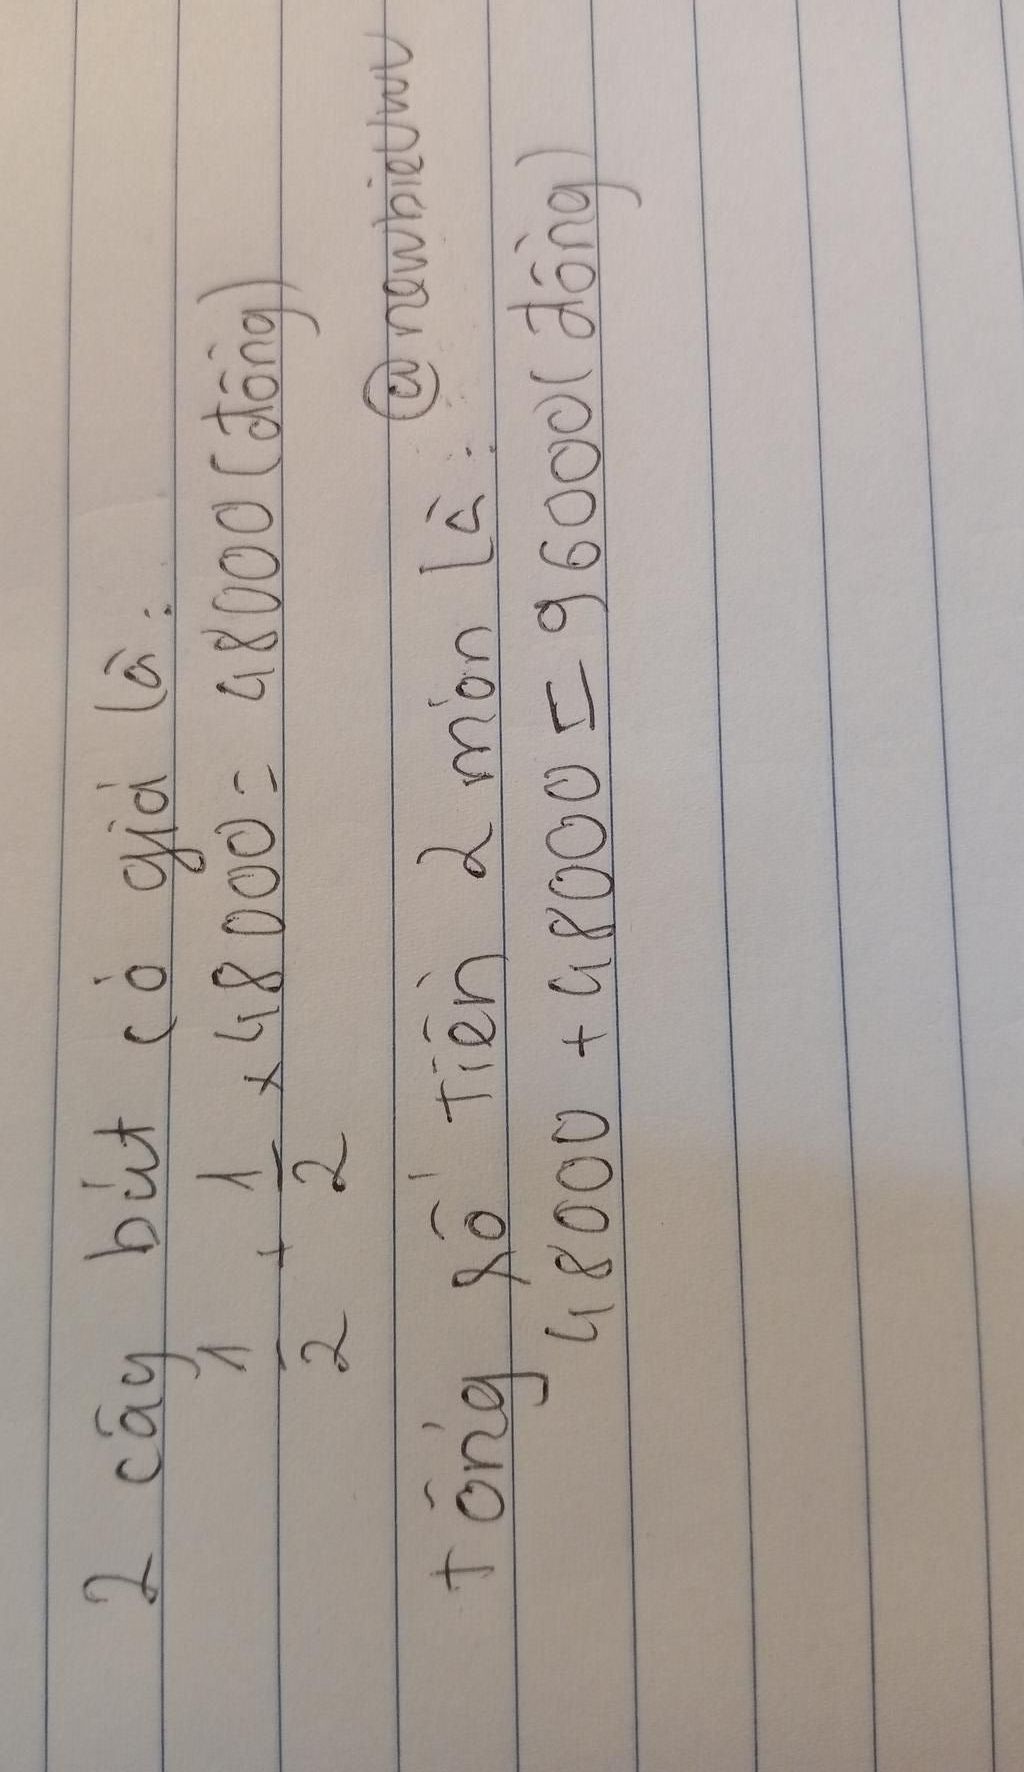 2 cây bút có giá là:
1/2 + 1/2 × 48000 = 48000 (đồng)
@nawbievmv
Tổng số tiền 2 món là:
48000 + 48000 = 96000 (đồng)